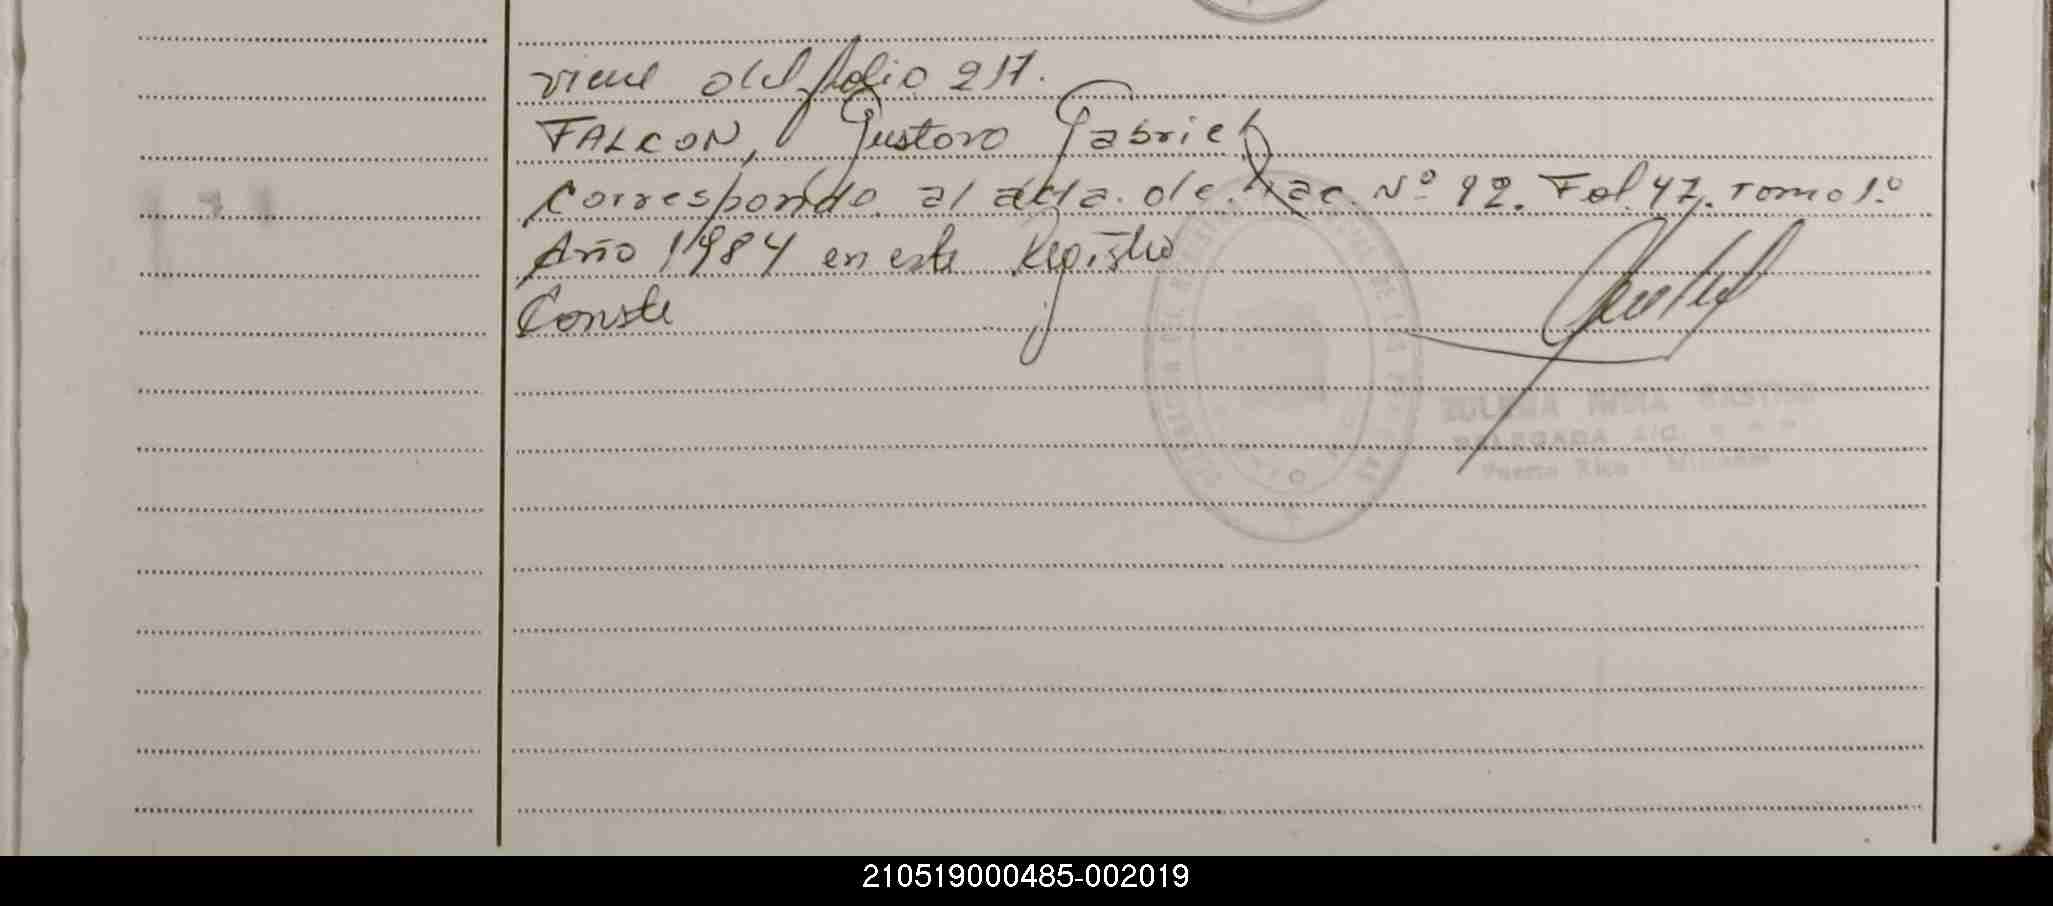 viene del folio 217.
FALCON, Gustavo Gabriel
Corresponde al acta de Nac. Nº 92. Fol. 47. Tomo 1º
Año 1984 en este Registro
Conste
DELEGADA
Puerto Rico Misiones
210519000485-002019